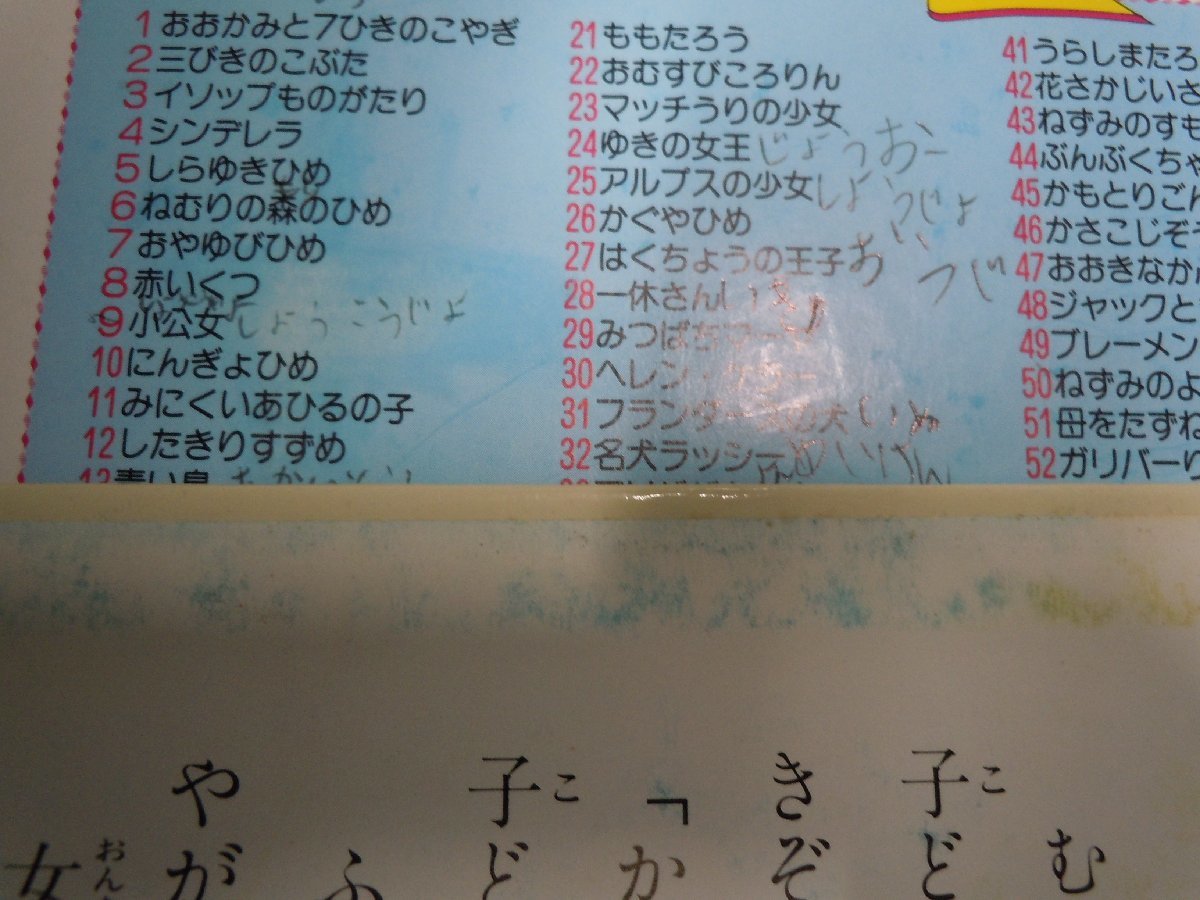 1 おおかみと7ひきのこやぎ
2 三びきのこぶた
3 イソップものがたり
4 シンデレラ
5 しらゆきひめ
6 ねむりの森のひめ
7 おやゆびひめ
8 赤いくつ
9 小公女 しょうこうじょ
10 にんぎょひめ
11 みにくいあひるの子
12 したきりすずめ
13 青い鳥
21 ももたろう
22 おむすびころりん
23 マッチうりの少女
24 ゆきの女王 じょうおー
25 アルプスの少女 しょうじょ
26 かぐやひめ
27 はくちょうの王子 おいつじ
28 一休さん
29 みつばち
30 ヘレン・ケラー
31 フランダースの犬 いぬ
32 名犬ラッシー めいけん
41 うらしまたろ
42 花さかじいさ
43 ねずみのすも
44 ぶんぶくちゃ
45 かもとりごん
46 かさこじぞ
47 おおきなか
48 ジャックと
49 ブレーメン
50 ねずみのよ
51 母をたずね
52 ガリバーり
む
子ど
こ
きぞ
「か
子ど
こ
ふ
やが
女
おん